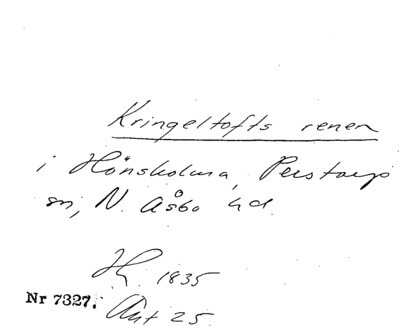 Kringeltofts renen
i Hönsholma, Perstorp
sn, N. Åsbo hd.
Hy. 1835
Nr 7327. Akt 25